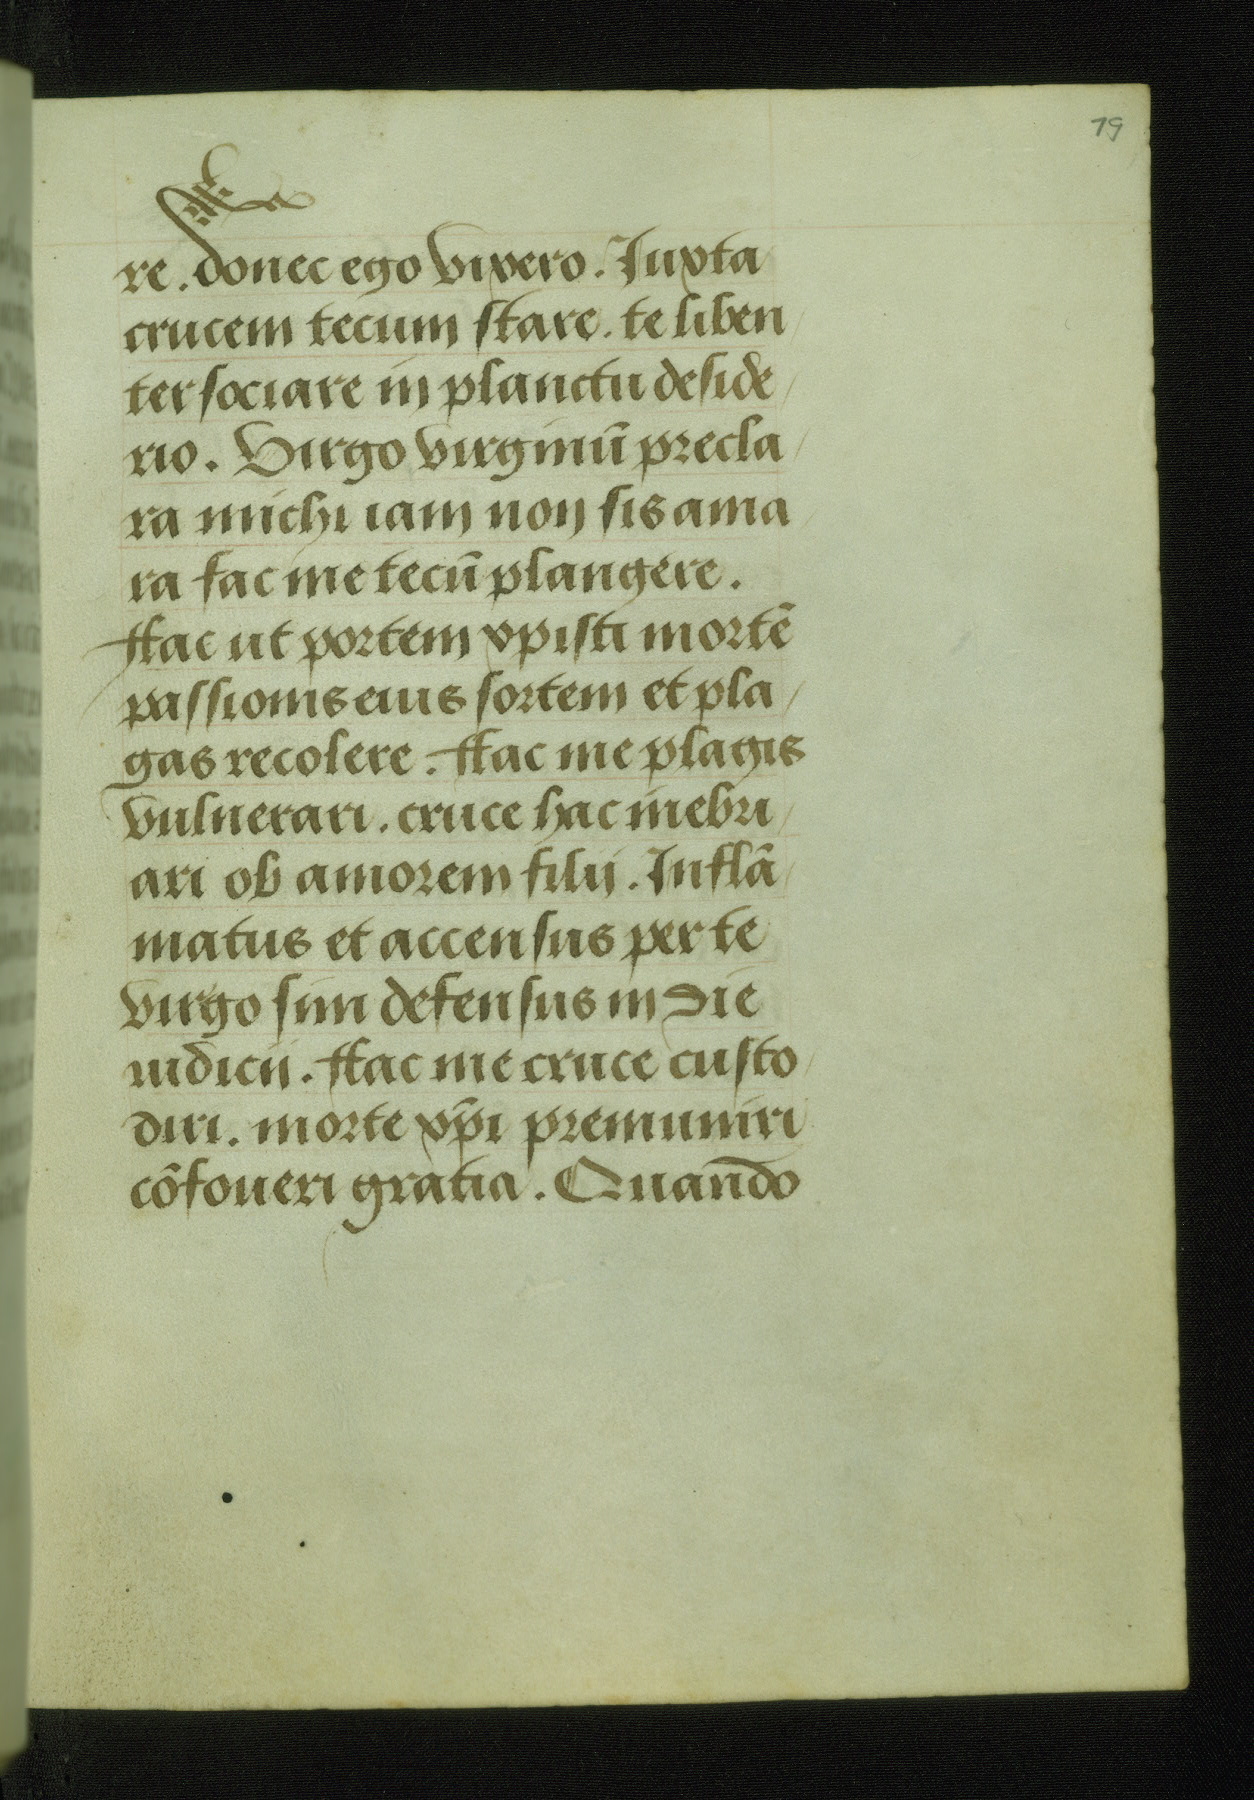 19
re. donec ego vixero. Iuxta
crucem tecum stare. te liben
ter sociare in planctu deside
rio. Virgo virginũ precla
ra michi iam non sis ama
ra fac me tecũ plangere.
ffac ut portem xpisti mortẽ
passionis eius sortem et pla
gas recolere. ffac me plagis
vulnerari. cruce hac inebri
ari ob amorem filii. Inflã
matus et accensus per te
virgo sim defensus in die
iudicii. ffac me cruce custo
diri. morte xp̄i premuniri
cõfoueri gratia. Quando